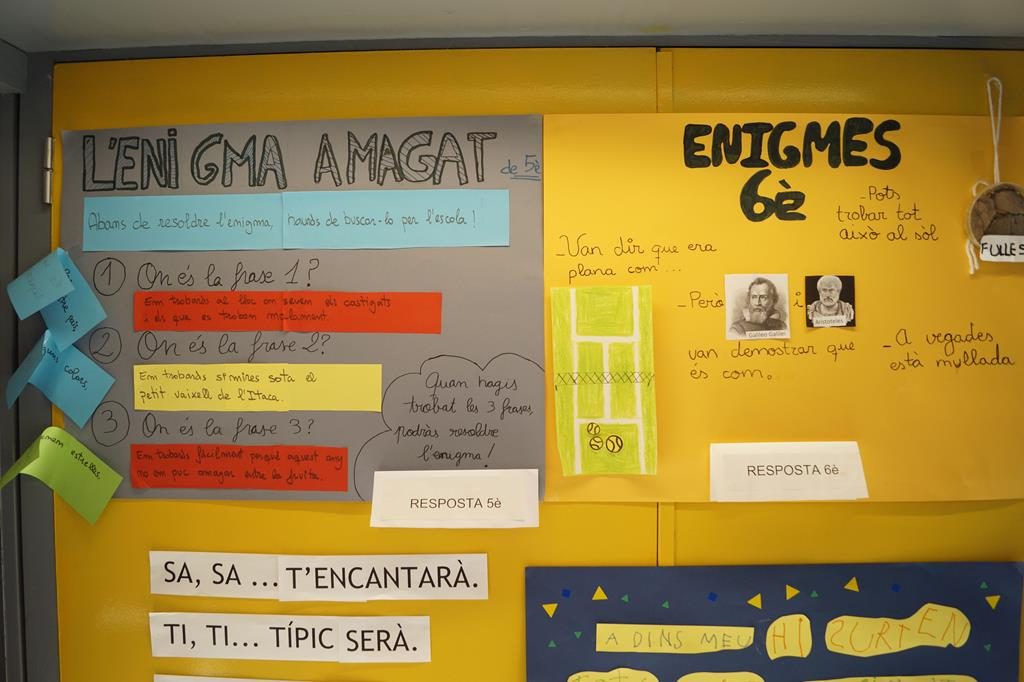 L'ENIGMA AMAGAT de 5è
Abans de resoldre l'enigma, hauràs de buscar-lo per l'escola!
1 On és la frase 1?
Em trobaràs al lloc on seuen els castigats
i els que es troben malament.
2 On és la frase 2?
Em trobaràs si mires sota el
petit vaixell de l'Itaca.
3 On és la frase 3?
Em trobaràs fàcilment perquè aquest any
no em puc amagar entre la fruita.
Quan hagis
trobat les 3 frases,
podràs resoldre
l'enigma!
RESPOSTA 5è
colors,
estrelles.
ENIGMES
6è
-Pots
trobar tot
això al sòl
FULLES
-Van dir que era
plana com...
-Però
Galileo Galilei
i
Aristoteles
van demostrar que
és com.
-A vegades
està mullada
RESPOSTA 6è
SA, SA ... T'ENCANTARÀ.
TI, TI... TÍPIC SERÀ.
A DINS MEU HI SURTEN